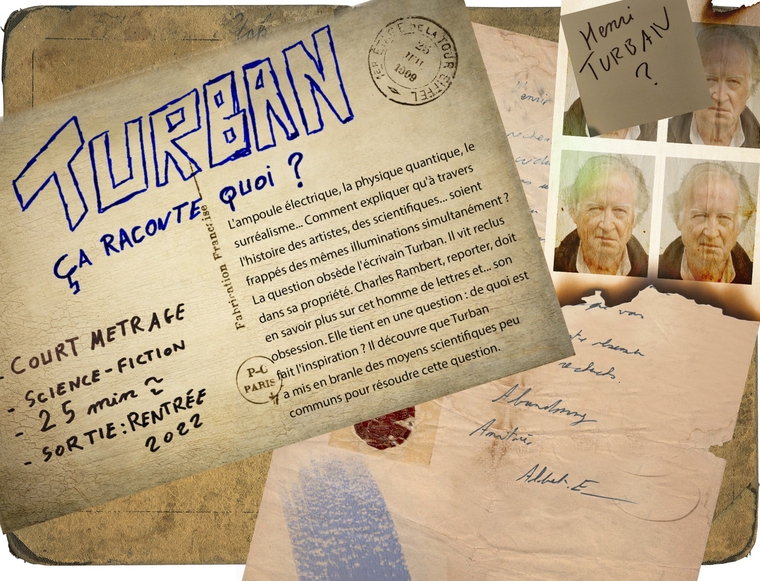 TURBAN
ÇA RACONTE QUOI ?
L'ampoule électrique, la physique quantique, le
surréalisme... Comment expliquer qu'à travers
l'histoire des artistes, des scientifiques... soient
frappés des mèmes illuminations simultanément ?
La question obsède l'écrivain Turban. Il vit reclus
dans sa propriété. Charles Rambert, reporter, doit
en savoir plus sur cet homme de lettres et... son
obsession. Elle tient en une question : de quoi est
fait l'inspiration ? Il découvre que Turban
a mis en branle des moyens scientifiques peu
communs pour résoudre cette question.
- COURT METRAGE
- SCIENCE-FICTION
- 25 min ~
- SORTIE: RENTRÉE
2022
Fabrication Française
P-C
PARIS
ETAGE DE LA TOUR EIFFEL
25
1909
Henri
TURBAN
?
Albert. E